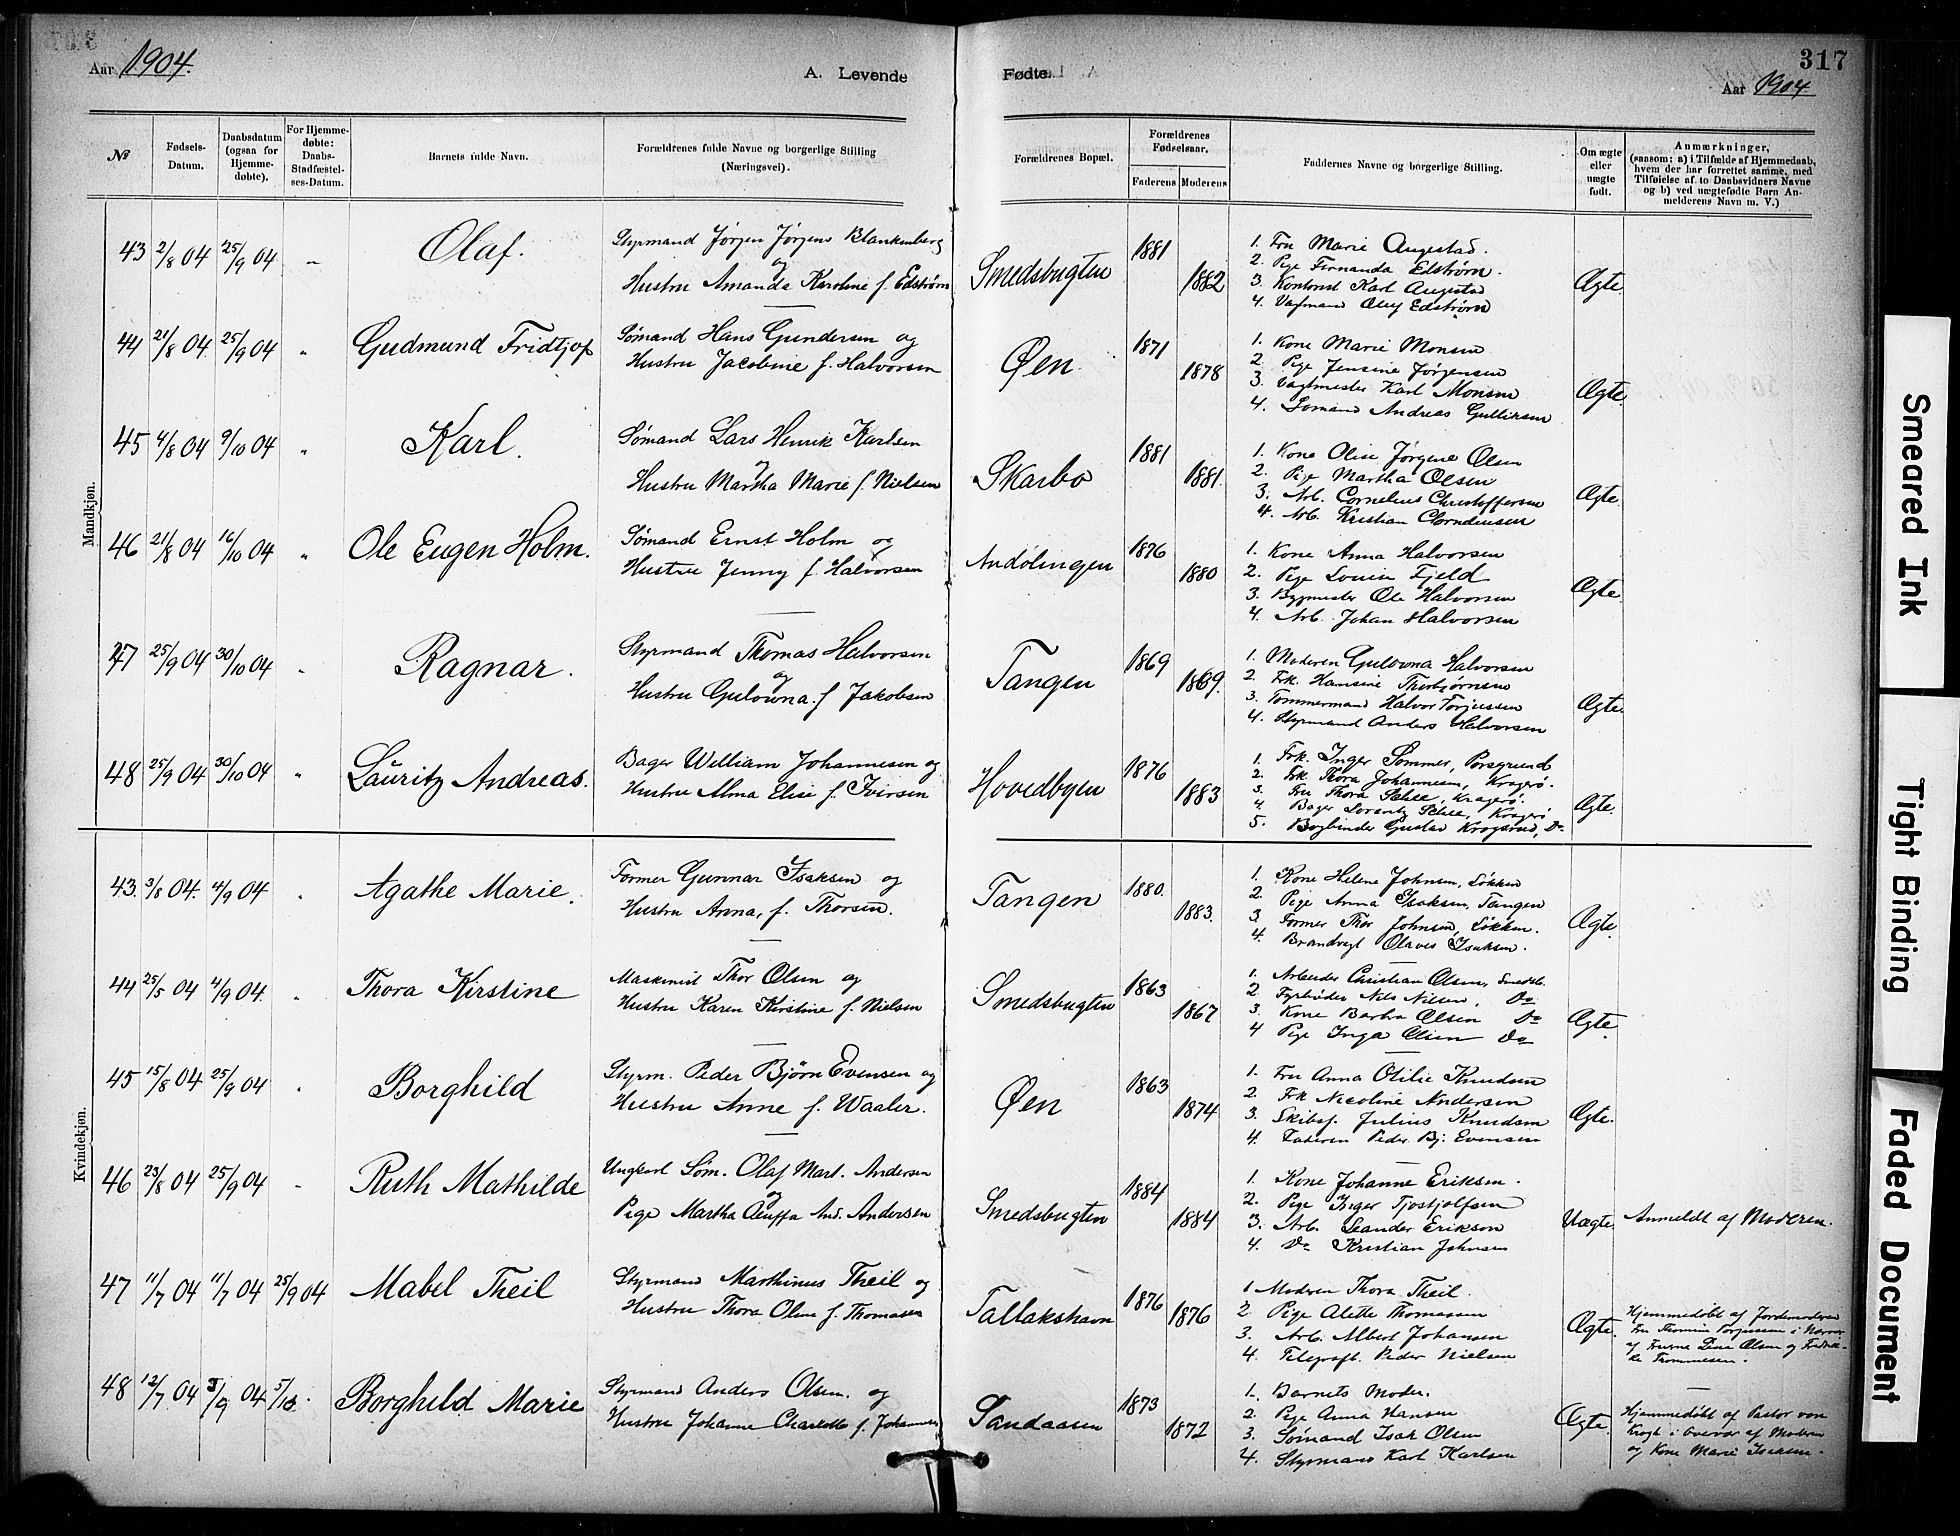 Aar 1904.
A. Levende
Fødte.
317
Aar 1904
No
Fødsels-Datum.
Daabsdatum (ogsaa for Hjemme-døbte).
For Hjemme-døbte: Daabs-Stadfæstel-ses-Datum.
Barnets fulde Navn.
Forældrenes fulde Navne og borgerlige Stilling (Næringsvei).
Forældrenes Bopæl.
Forældrenes Fødselsaar.
Faderens
Moderens
Faddernes Navne og borgerlige Stilling.
Om ægte eller uægte født.
Anmærkninger,
(saasom: a) i Tilfælde af Hjemmedaab, hvem der har forrettet samme, med Tilføielse af to Daabsvidners Navne og b) ved uægtefødte Børn An-melderens Navn m. V.)
Mandkjøn.
43 2/8 04 25/9 04 " Olaf. Styrmand Jørgen Jørgens Blankenberg og
Hustru Amanda Karoline f. Edstrøm
Smedsbugten 1881 1882
1. Fru Marie Augestad.
2. Pige Fernanda Edstrøm.
3. Kontorist Karl Augestad
4. Oluf Edstrøm
Ægte.
44 21/8 04. 25/9 04 " Gudmund Fridtjof Sømand Hans Gundersen og
Hustru Jacobine f. Halvorsen
Øen 1871 1878
1. Kone Marie Monsen
2. Pige Jensine Jørgensen
3. Vagtmester Karl Monsen
4. Sømand Andreas Gulliksen
Ægte.
45 4/8 04 9/10 04 " Karl. Sømand Lars Henrik Karlsen og
Hustru Martha Marie f. Nielsen
Skarbo 1881 1881.
1. Kone Olise Jørgine Olsen
2. Pige Martha Olsen
3. Arb. Cornelius Christoffersen
4. Arb. Kristian
Ægte
46 21/8 04 16/10 04 " Ole Eugen Holm. Sømand Ernst Holm og
Hustru Jenny f. Halvorsen
Andølingen 1876 1880
1. Kone Anna Halvorsen
2. Pige Louise Fjeld
3. Bygmester Ole Halvorsen
4. Arb. Johan Halvorsen
Ægte.
47 25/9 04 30/10 04 " Ragnar. Styrmand Thomas Halvorsen og
Hustru Gulowna f. Jakobsen
Tangen 1869 1869.
1. Moderen Gulowna Halvorsen
2. Frk. Hansine Thorbjørnsen
3. Tømmermand Halvor Torjussen
4. Styrmand Anders Halvorsen
Ægte.
48 25/9 04 30/10 04 " Lauritz Andreas. Bager William Johannesen og
Hustru Alma Elise f. Iversen
Hovedbyen 1876 1883
1. Frk. Inger Sommer, Porsgrund
2. Frk. Thora Johannesen, Kragerø.
3. Fru Thora Schee, Kragerø.
4. Bager Lorentz Schee, Kragerø
5. Bogbinder Gustav Krogsrud, Do
Ægte.
Kvindekjøn.
43. 3/8 04. 4/9 04 " Agathe Marie. Former Gunnar Isaksen og
Hustru Anna, f. Thorsen.
Tangen 1880. 1883.
1. Kone Helene Johnsen, Løkken
2. Pige Anna Isaksen, Tangen
3. Former Thor Johnsen, Løkken.
4. Brandvagt Olaves Isaksen.
Ægte.
44 25/5 04 4/9 04. " Thora Kirstine Maskinist Thor Olsen og
Hustru Karen Kirstine f. Nielsen
Smedsbugten 1863 1867
1. Arbeider Christian Olsen, Smedsb.
2 Fyrbøder Nils Nilsen, Do
3. Kone Barbra Olsen Do
4 Pige Inga Olsen Do
Ægte.
45 15/8 04 25/9 04 " Borghild Styrm. Peder Bjørn Evensen og
Hustru Anne f. Waaler.
Øen 1863 1874
1. Fru Anna Otilie Knudsen
2. Frk Nicoline Andersen
3. Skibsf. Julius Knudsen
4. Faderen Peder Bj. Evensen
Ægte.
46 23/8 04 25/9 04 " Ruth Mathilde Ungkarl Søm. Olaf Mart. Andersen og
Pige Martha And. Andersen
Smedsbugten 1884 1884
1. Kone Johanne Eriksen.
2. Pige Inger Tjostjolfsen
3. Arb. Leander Erikson
4. Do Kristian Johnsen
Uægte. Anmeldt af Moderen.
47 11/7 04 11/7 04 25/9 04 Mabel Theil Styrmand Marthinus Theil og
Hustru Thora Oline f. Thomasen
Tallakshavn 1876 1876
1 Moderen Thora Theil.
2. Pige Alette Thomassen
3. Arb. Albert Johansen
4. Telegrafb. Peder Nielsen
Ægte. Hjemmedøbt af Jordemoderen
Fru Thomine Torjussen i Nærvær
af Fruerne Lina Olsen og Fredrik-
ke Trommesen.
48 12/7 04 3/9 04 5/10. Borghild Marie Styrmand Anders Olsen. og
Hustru Johanne Charlotte f. Johannes
Sandaasen 1873 1872
1. Barnets Moder.
2. Pige Anna Hansen
3. Sømand Isak Olsen
4. Styrmand Karl Karlsen
Ægte. Hjemmedøbt af Pastor von
Krogh i Overvær af Moderen
og Kone Marie Isaksen.
Smeared Ink
Tight Binding
Faded Document